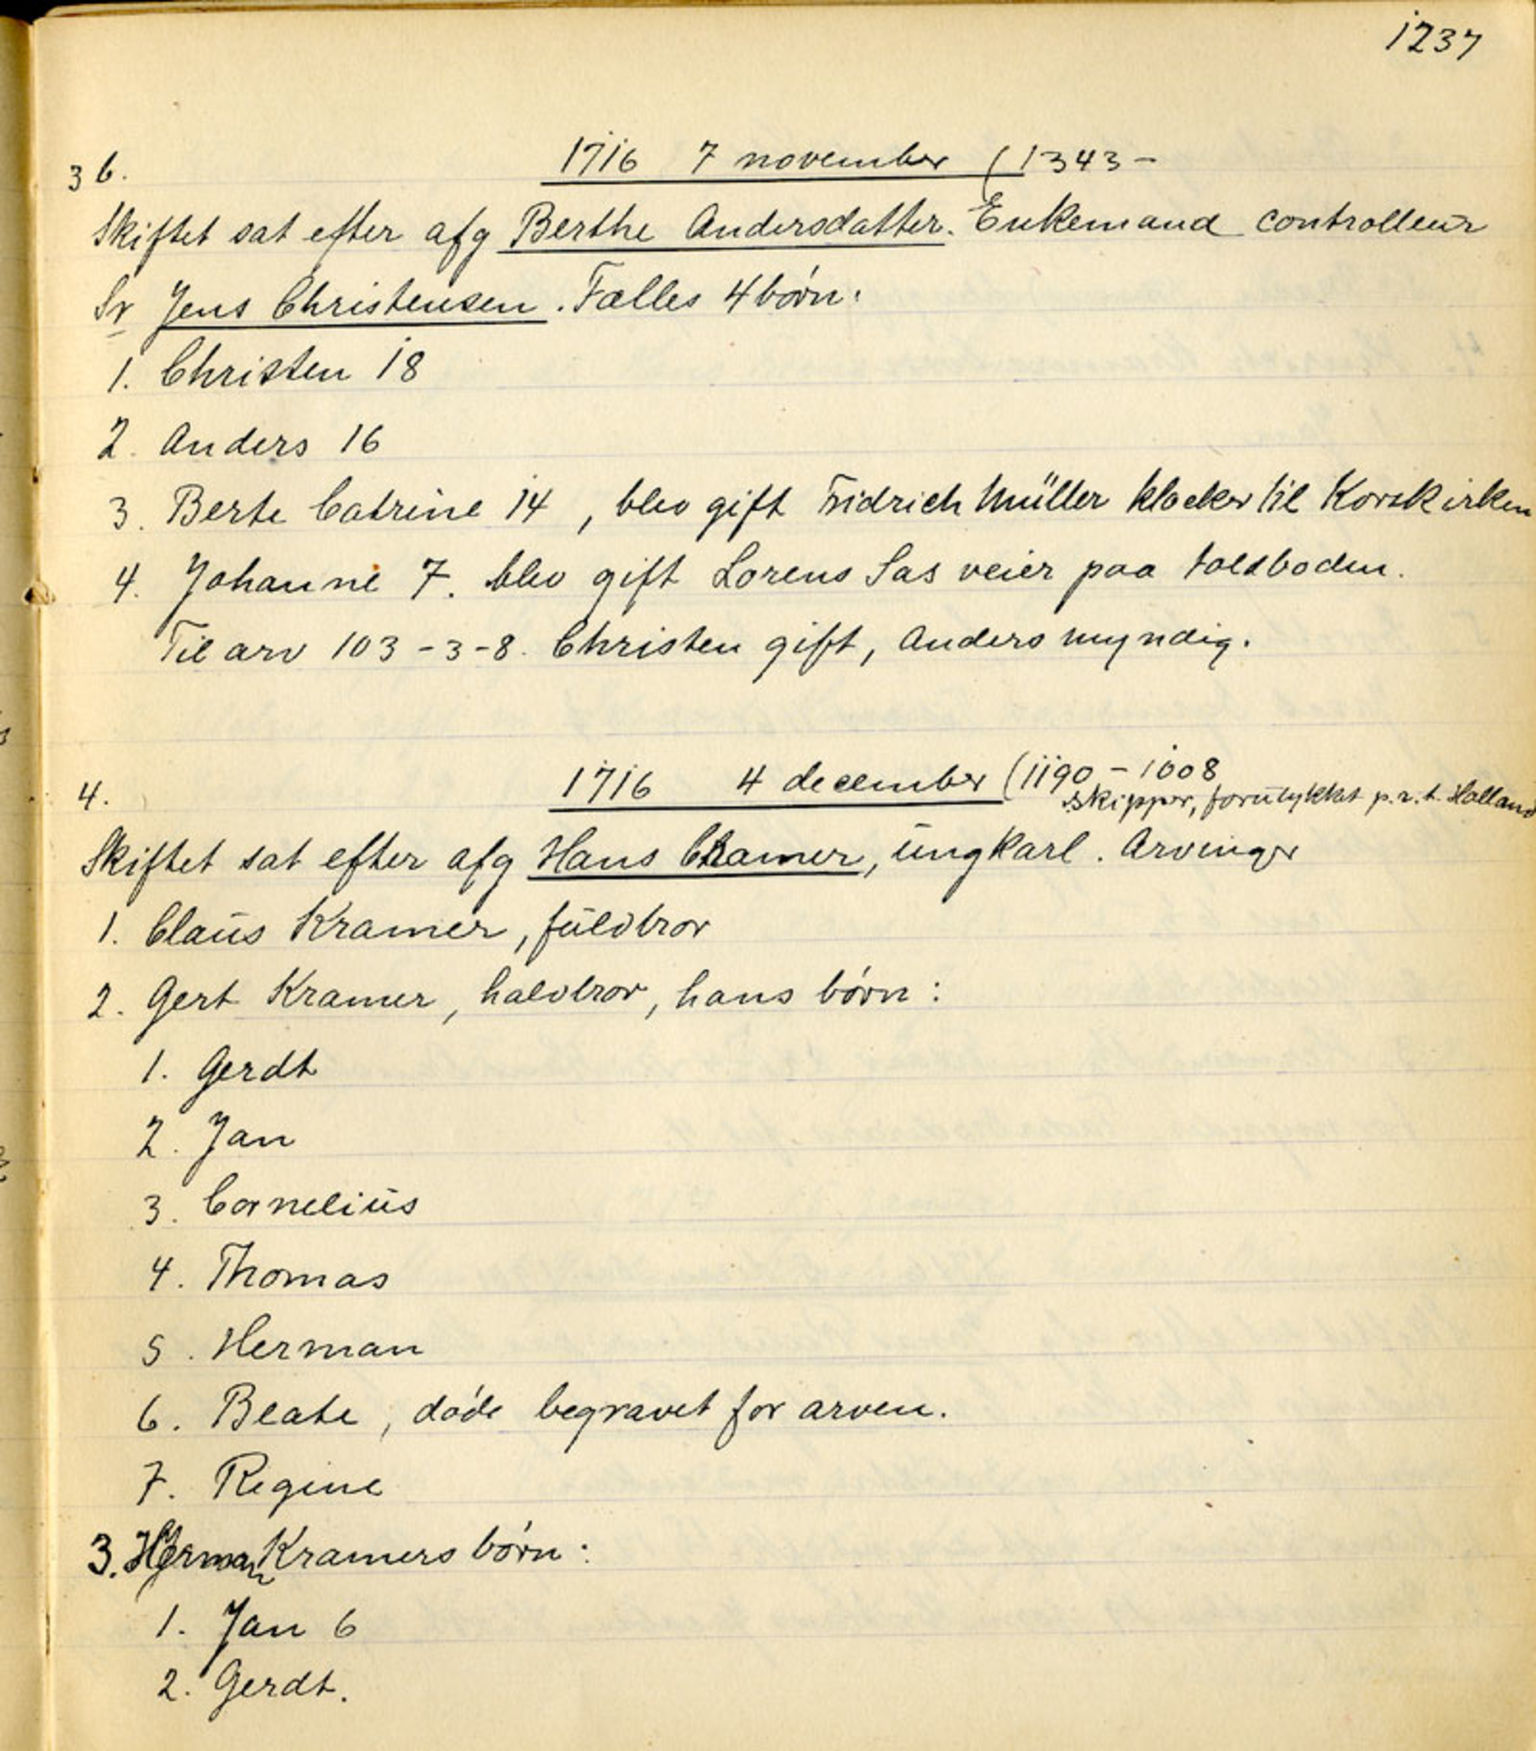 1237
3 b.
1716 7 november (1343 -
Skiftet sat efter afg Berthe Andersdatter. Enkemand controlleur
Sr Jens Christensen. Fælles 4 børn:
1. Christen 18
2. Anders 16
3. Berte Catrine 14, blev gift Fridrich Müller klocker til Korskirken
4. Johanne 7. blev gift Lorens Sas veier paa toldboden.
Til arv 103-3-8. Christen gift, Anders myndig.
4.
1716 4 december (1190 - 1008
skipper, forulykket p.r.t. Holland
Skiftet sat efter afg Hans Cramer, ungkarl. Arvinger
1. Claus Kramer, fuldbror
2. Gert Kramer, halvbror, hans børn:
1. Gerdt
2. Jan
3. Cornelius
4. Thomas
5. Herman
6. Beate, døde begravet for arven.
7. Regine
3. Herman Kramers børn:
1. Jan 6
2. Gerdt.